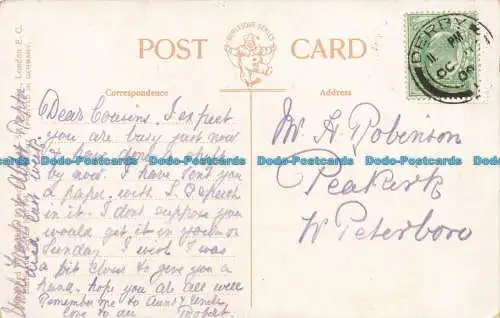 POST CARD
BURLESQUE SERIES
Correspondence
Address
Dear Cousins. I expect
you are busy just now
by now. I have sent you
a paper with L. G speech
in it. I dont suppose you
would get it in your
Sunday I wish I was
a bit closer to give you a
hand. hope you are all well
Remember me to Aunt & Uncle
Love to all Robert
Mr H Robinson
Peakirk
Nr Peterboro
DERBY
PM
OC
London E.C.
last week.
Dodo-Postcards Dodo-Postcards Dodo-Postcards Dodo-Postcards
Dodo-Postcards Dodo-Postcards Dodo-Postcards